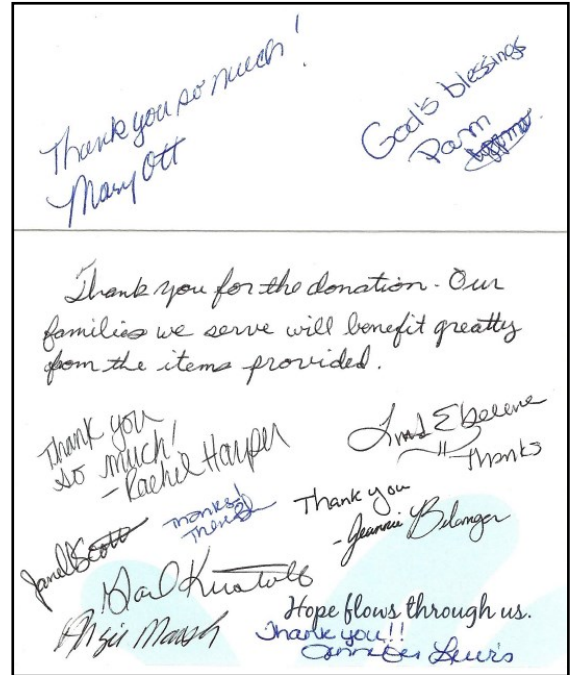 Thank you so much!
Mary Ott
God's blessings
Pam
Thank you for the donation. Our
families we serve will benefit greatly
from the items provided.
Thank you
so much!
- Rachel Harper
Thanks
Thanks!
Thank you
- Jeannie Belanger
Janel Scott
Angie Marsh
Hope flows through us.
Thank you!!
Jennifer Lewis